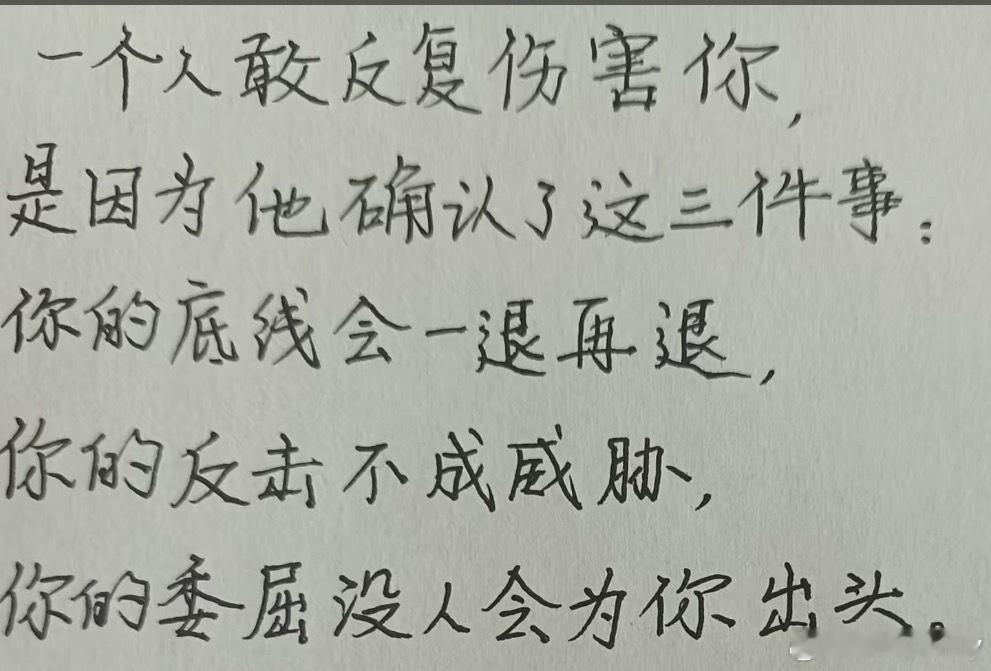 一个人敢反复伤害你,
是因为他确认了这三件事:
你的底线会一退再退,
你的反击不成威胁,
你的委屈没人会为你出头。